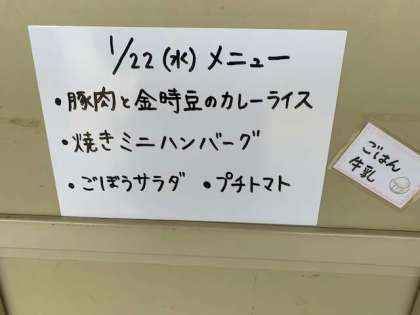 1/22(水)メニュー
・豚肉と金時豆のカレーライス
・焼きミニハンバーグ
・ごぼうサラダ ・プチトマト
ごはん
牛乳